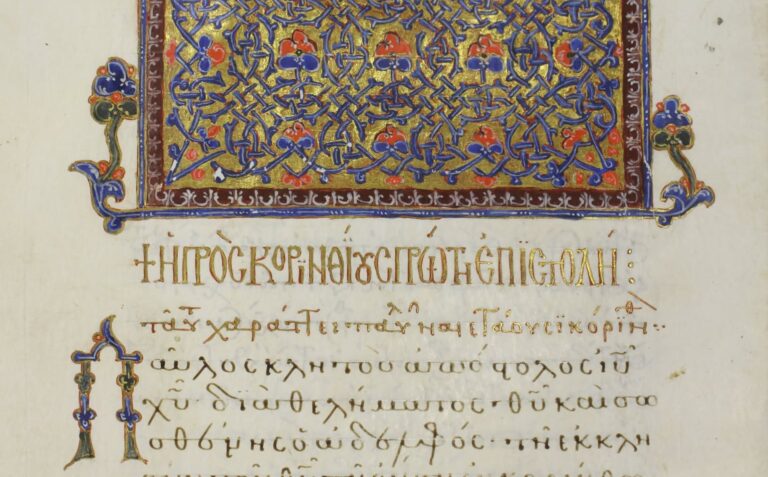 + Ἡ ΠΡῸΣ ΚΟΡΙΝΘΊΟΥΣ ΠΡΏΤΗ ἘΠΙΣΤΟΛΉ :
ταῦτ χαράττει παῦλ ναιετάουσι κορίνθ
Παῦλος κλητὸς ἀπόστολος ἰῦ
χῦ διὰ θελήματος · θῦ καὶ σω
σθένης ὁ ἀδελφός · τῇ ἐκκλη